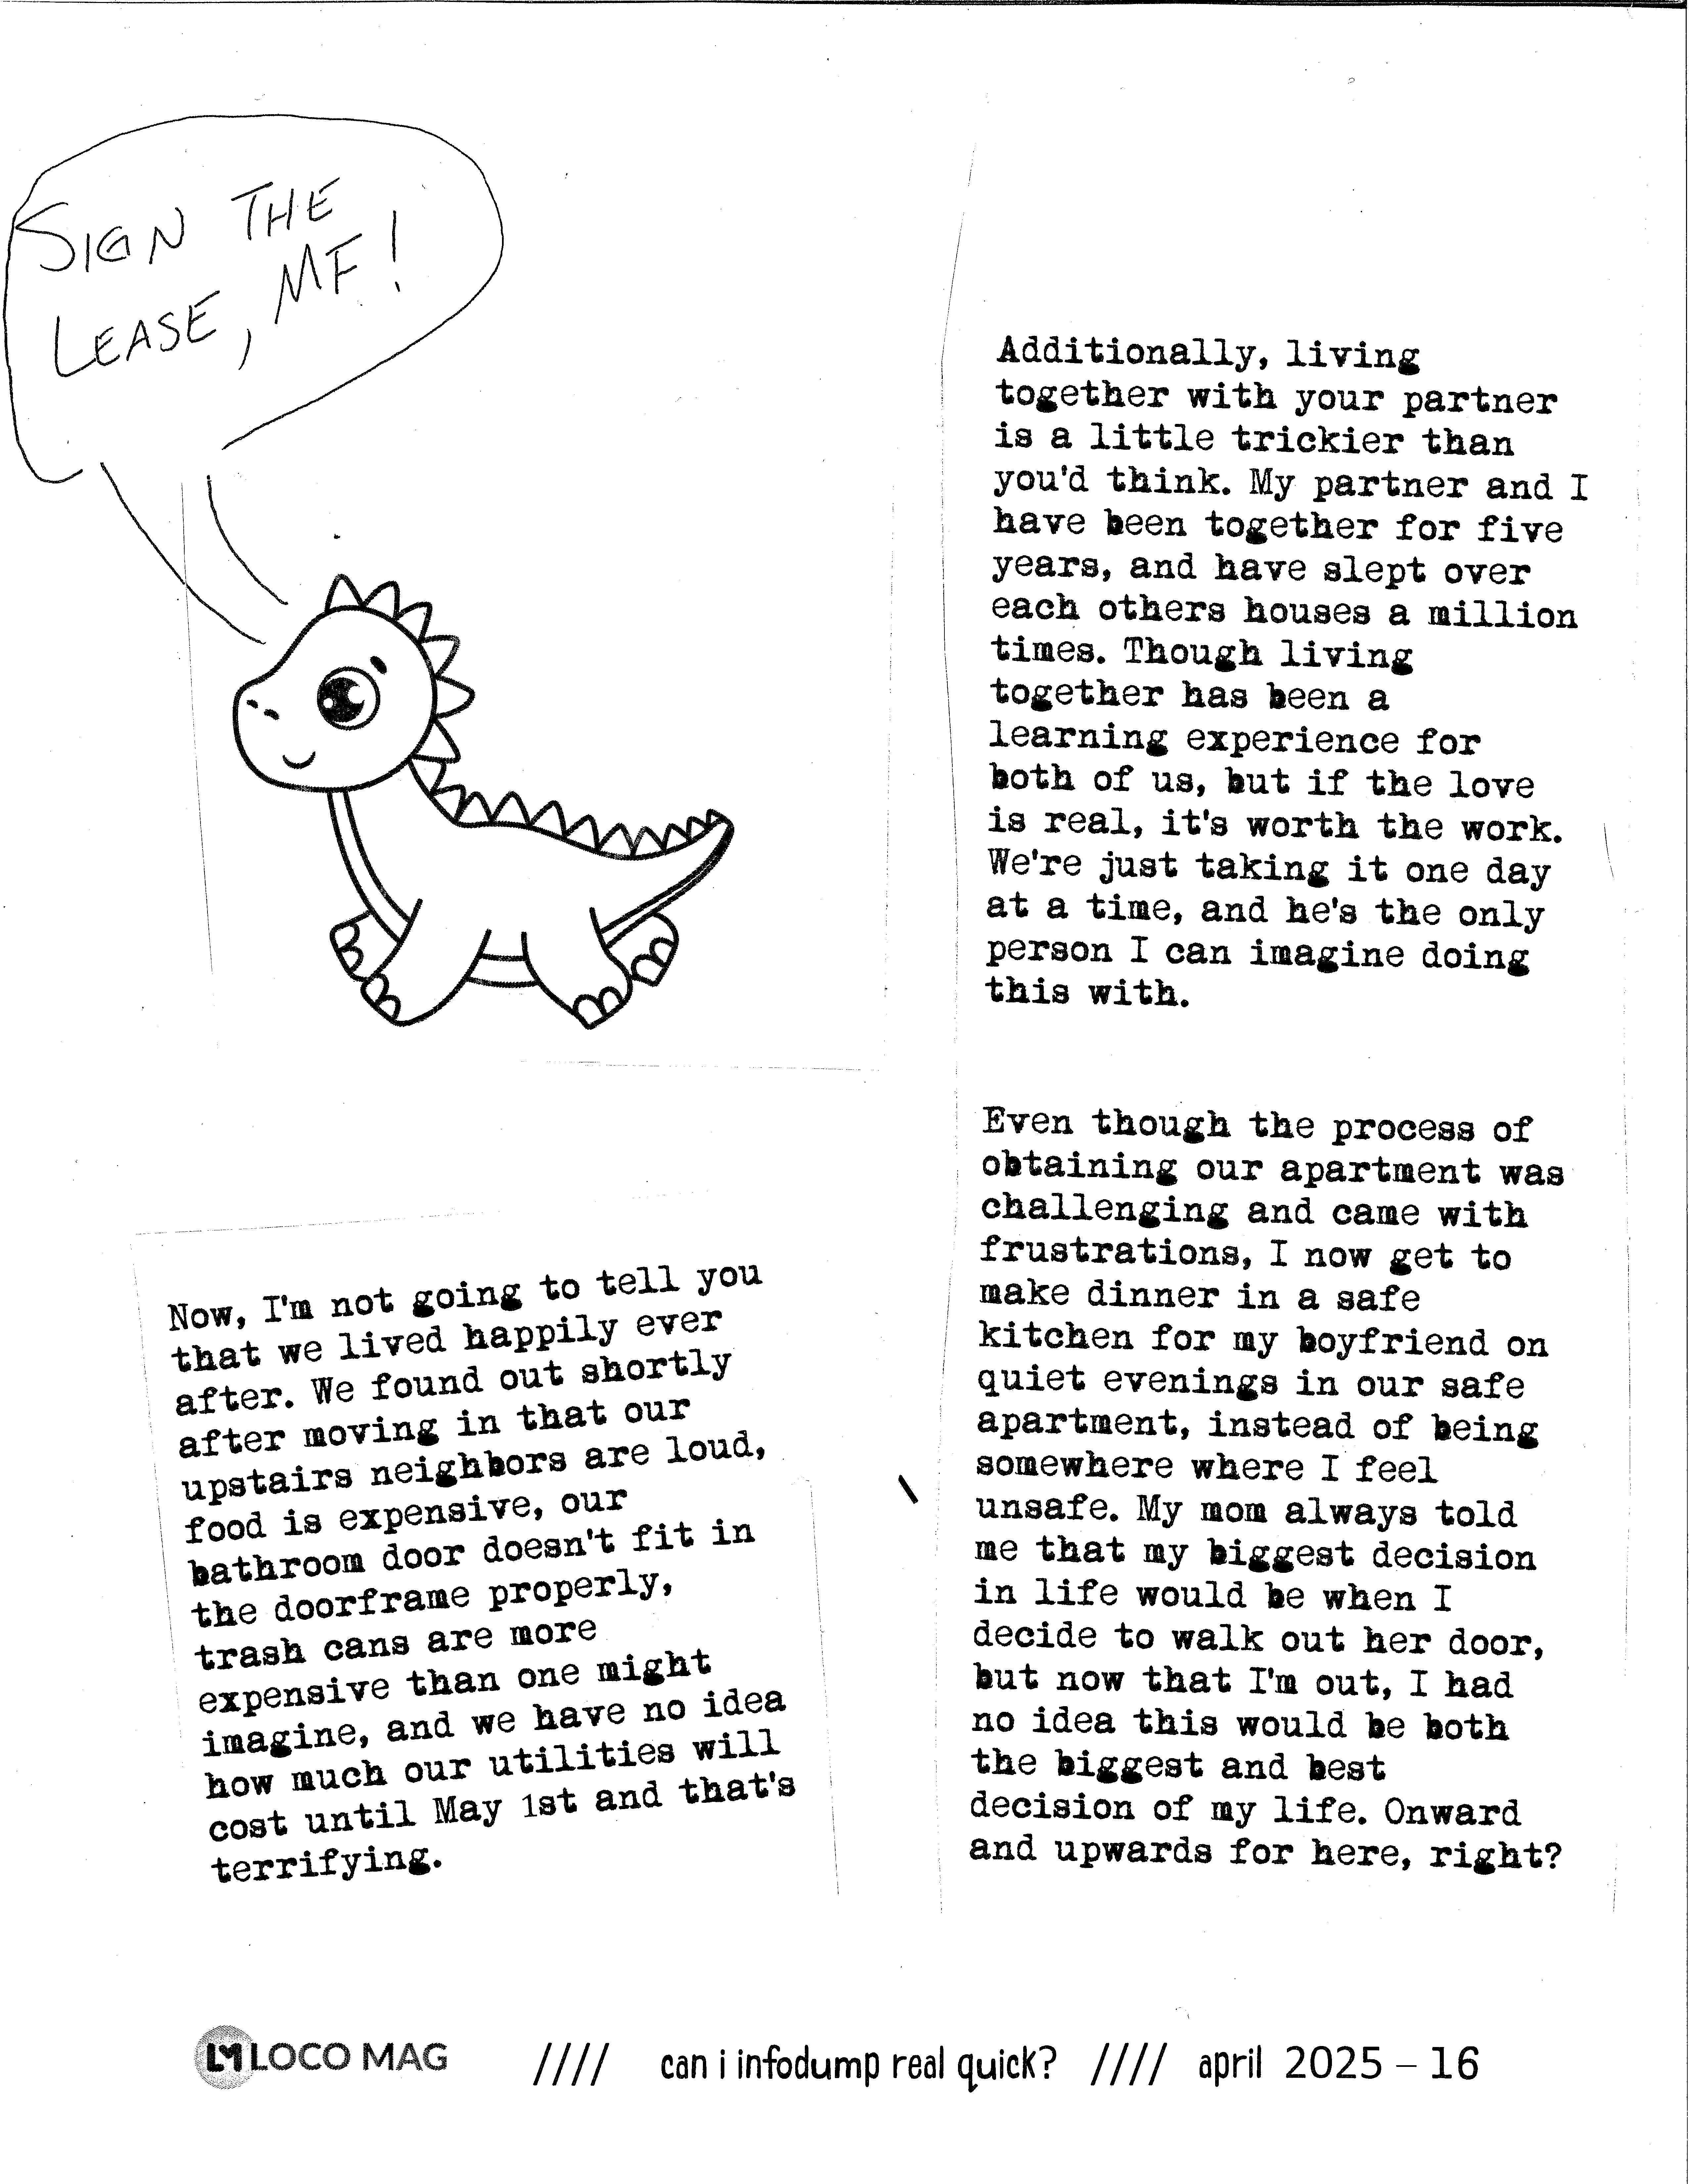 SIGN THE
LEASE, MF!
Now, I'm not going to tell you
that we lived happily ever
after. We found out shortly
after moving in that our
upstairs neighbors are loud,
food is expensive, our
bathroom door doesn't fit in
the doorframe properly,
trash cans are more
expensive than one might
imagine, and we have no idea
how much our utilities will
cost until May 1st and that's
terrifying.
Additionally, living
together with your partner
is a little trickier than
you'd think. My partner and I
have been together for five
years, and have slept over
each others houses a million
times. Though living
together has been a
learning experience for
both of us, but if the love
is real, it's worth the work.
We're just taking it one day
at a time, and he's the only
person I can imagine doing
this with.
Even though the process of
obtaining our apartment was
challenging and came with
frustrations, I now get to
make dinner in a safe
kitchen for my boyfriend on
quiet evenings in our safe
apartment, instead of being
somewhere where I feel
unsafe. My mom always told
me that my biggest decision
in life would be when I
decide to walk out her door,
but now that I'm out, I had
no idea this would be both
the biggest and best
decision of my life. Onward
and upwards for here, right?
LM LOCO MAG //// can i infodump real quick? //// april 2025 – 16